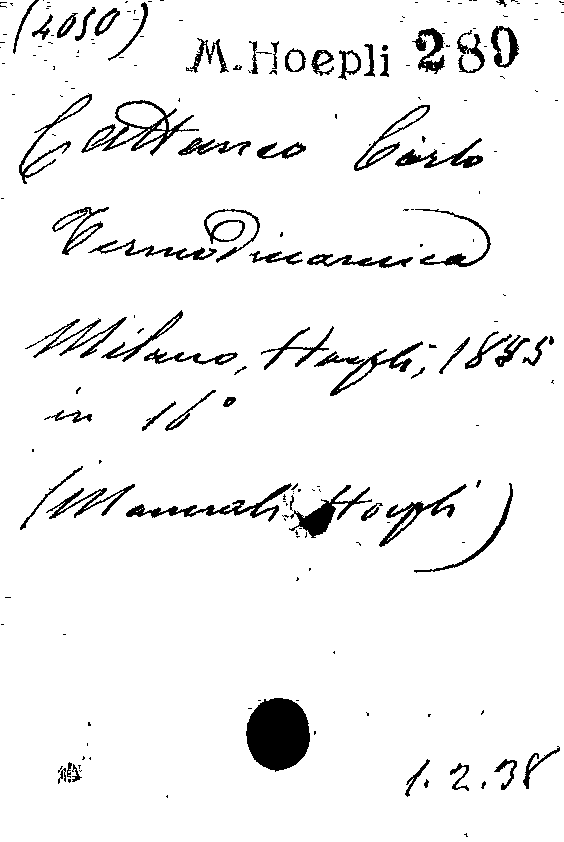 (4050)
M. Hoepli 289
Cattaneo Carlo
Termodinamica
Milano, Hoepli, 1885
in 16°
(Manuali Hoepli)
1.2.38